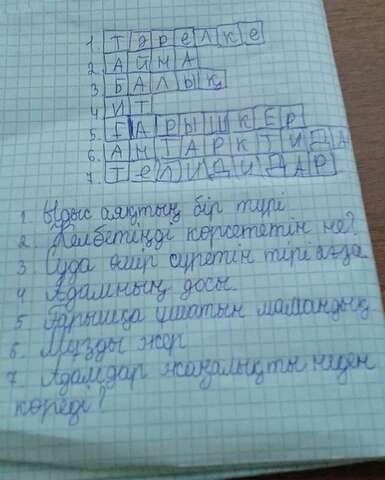 1. Тәрелке
2. Айна
3 Балық
4 Ит
5 Ғарышкер
6. Антарктида
7. Телидидар
1 Ыдыс аяқтың бір түрі
2. Келбетіңді көрсететін не?
3 Суда өмір сүретін тірі ағза
4 Адамның досы
5 Ғарышқа ұшатын мамандық
6 Мұзды жер
7 Адамдар жаңалықты неден
көреді?